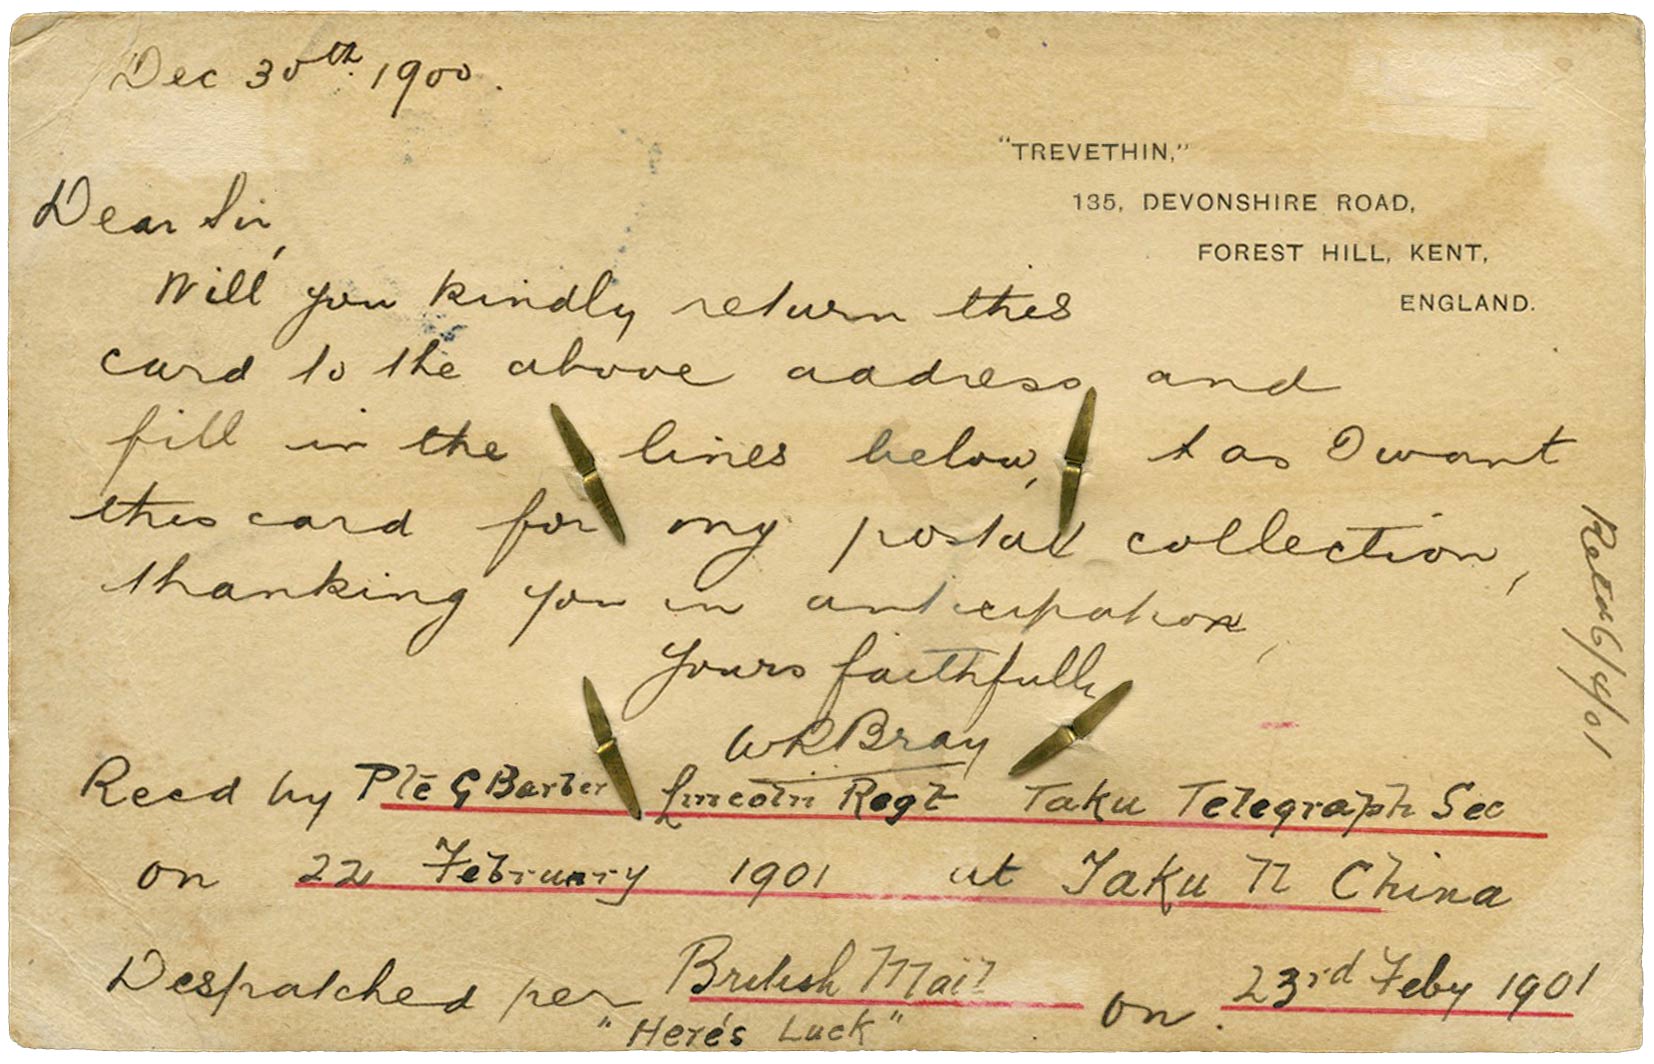 Dec 30th 1900.
"TREVETHIN,"
135, DEVONSHIRE ROAD,
FOREST HILL, KENT,
ENGLAND.
Dear Sir,
Will you kindly return this
card to the above address and
fill in the lines below, & as I want
this card for my postal collection,
thanking you in anticipation,
Yours faithfully
WRBray
Recd by Pte G Barber Lincoln Regt Taku Telegraph Sec
on 22 February 1901 at Taku N China
Despatched per British Mail on 23rd Feby 1901
"Here's Luck"
Retd 6/4/01